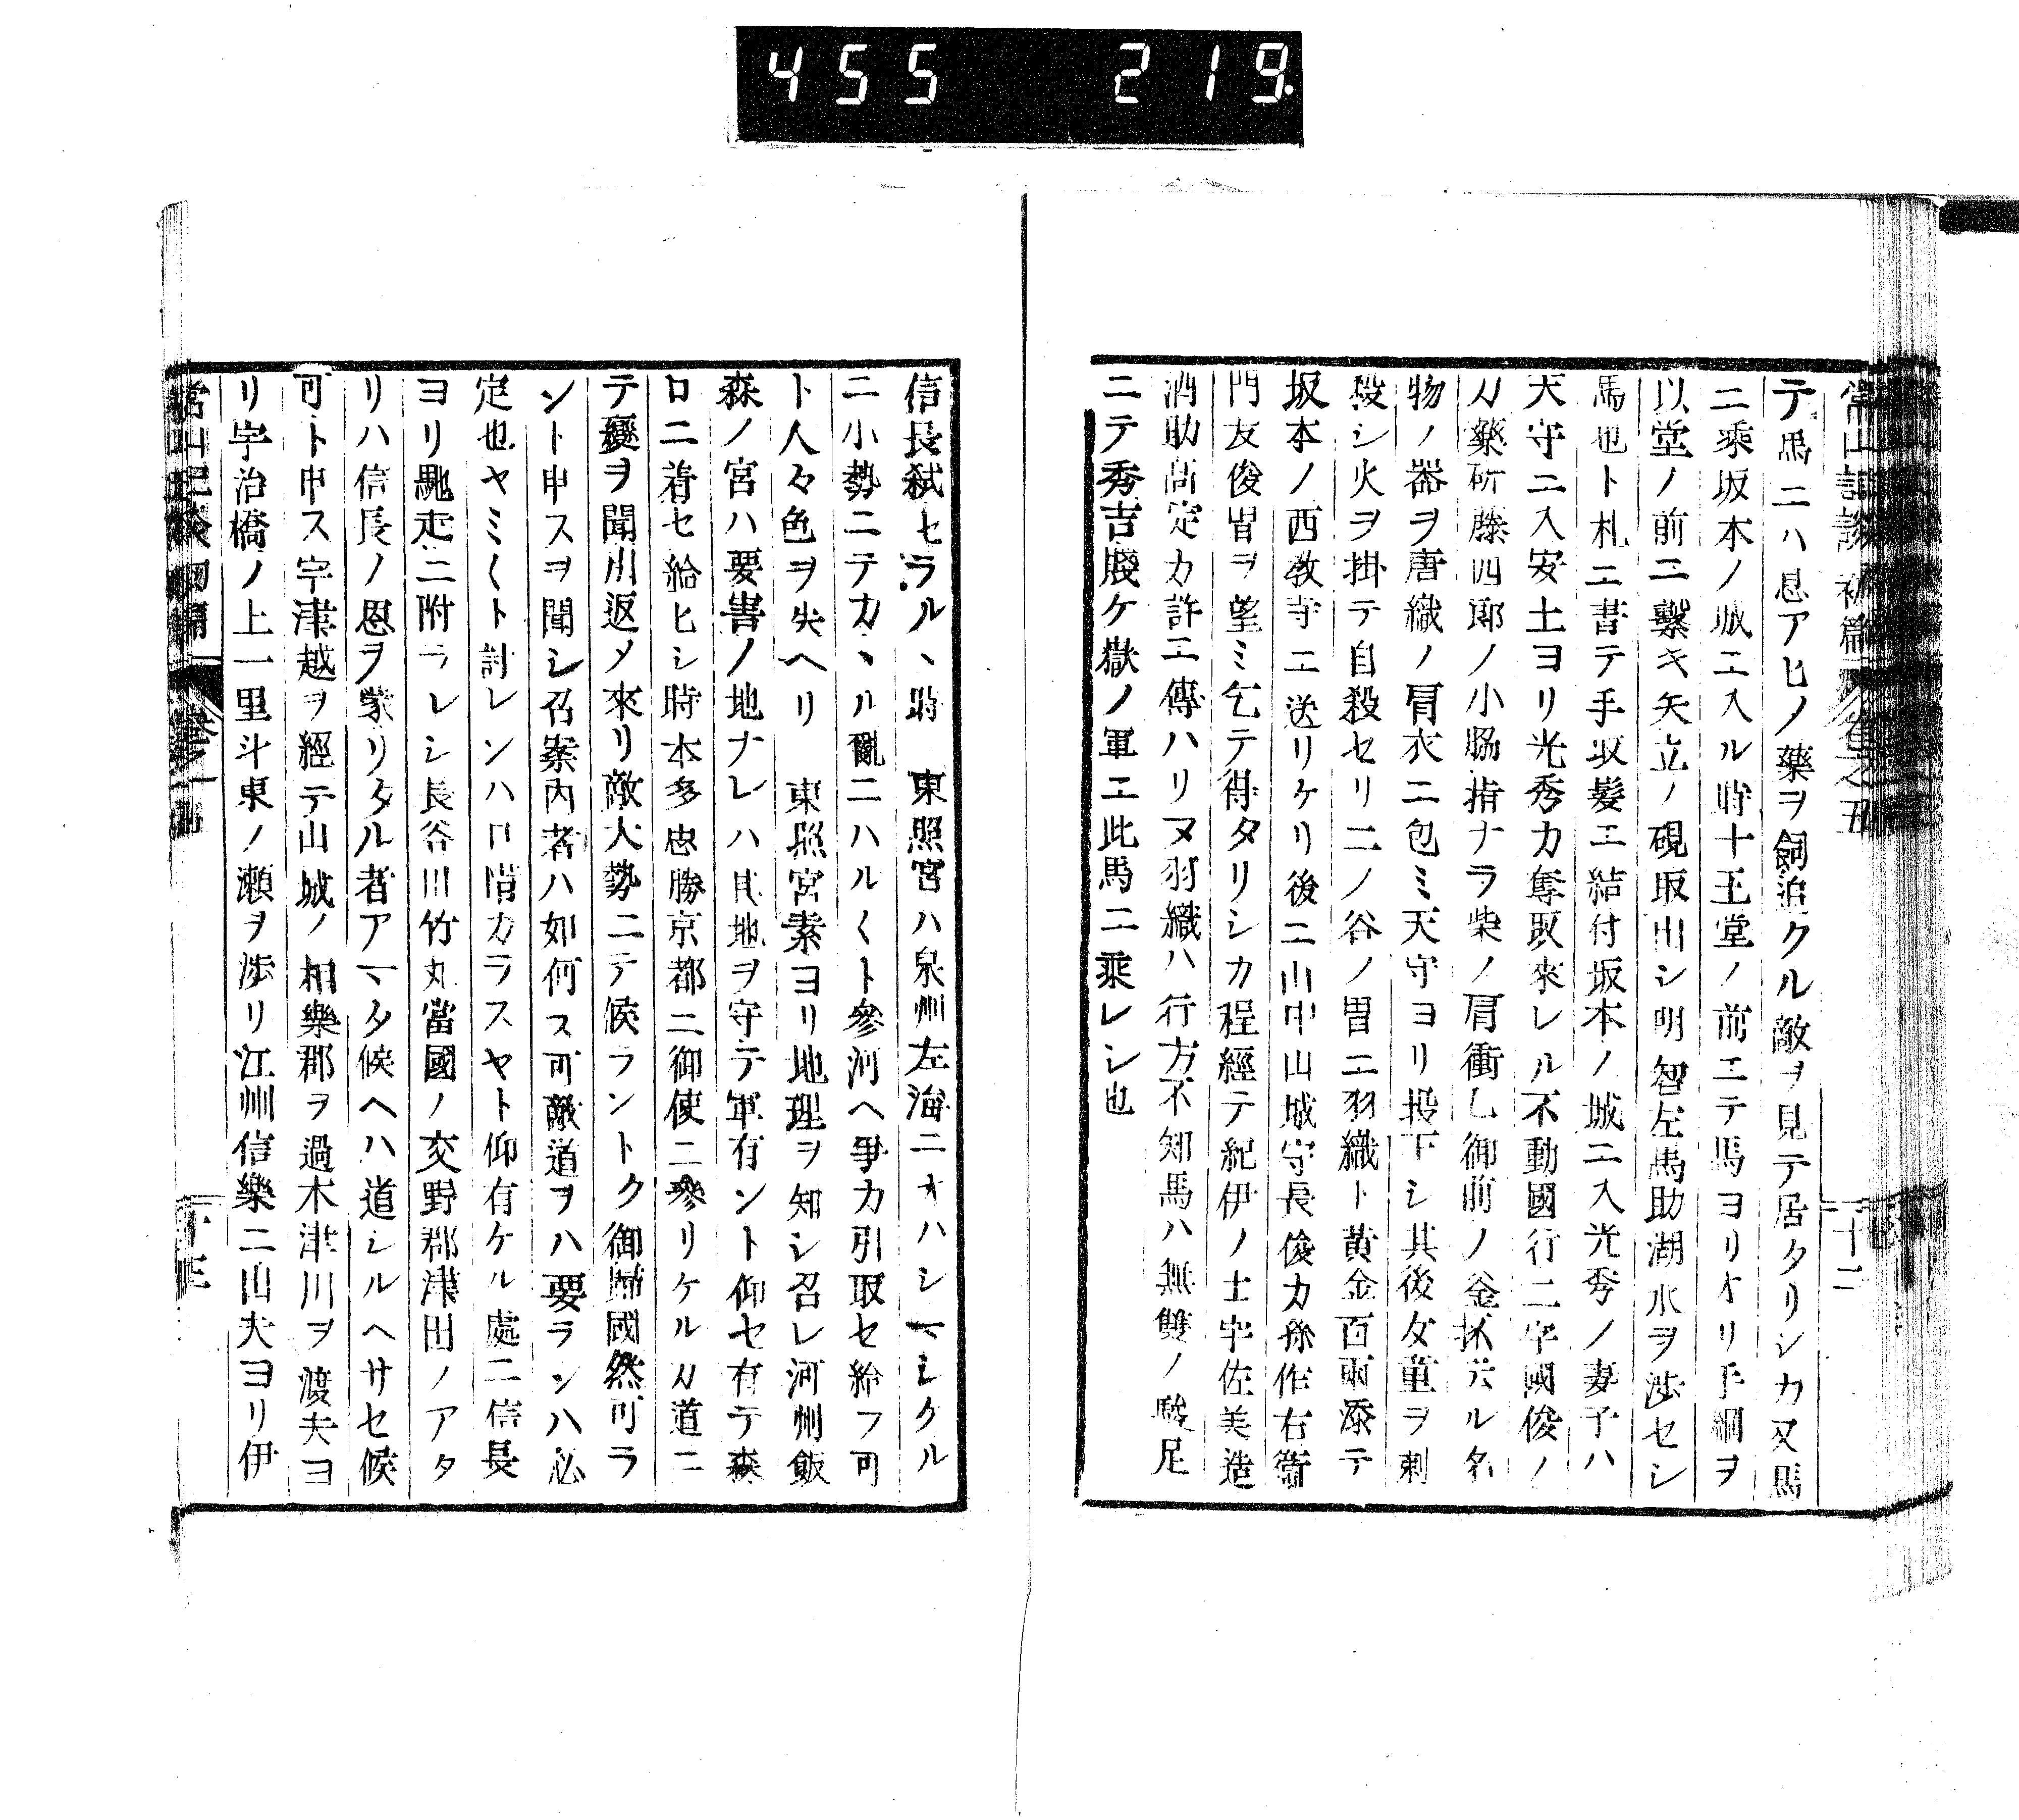 455 219
常山記談初篇 卷之五
十二
テ馬ニハ息アヒノ藥ヲ飼治クル敵ヲ見テ居タリシカ又馬
ニ乘坂本ノ城エ入ル時十王堂ノ前エテ馬ヨリオリ手綱ヲ
以堂ノ前ニ繫キ矢立ノ硯取出シ明智左馬助湖水ヲ渉セシ
馬也ト札ニ書テ手取髮エ結付坂本ノ城ニ入光秀ノ妻子ハ
天守ニ入安土ヨリ光秀カ奪取來レル不動國行二字國俊ノ
刀藥研藤四郎ノ小脇指ナラ柴ノ肩衝乙御前ノ釜抔云ル名
物ノ器ヲ唐織ノ肩衣ニ包ミ天守ヨリ投下シ其後女童ヲ刺
殺シ火ヲ掛テ自殺セリ二ノ谷ノ冑ニ羽織ト黃金百兩添テ
坂本ノ西敎寺ニ送リケリ後ニ山中山城守長俊カ孫作右衞
門友俊冑ヲ望ミ乞テ得タリシカ程經テ紀伊ノ士宇佐美造
酒助高定カ許エ傳ハリヌ羽織ハ行方不知馬ハ無雙ノ駿足
ニテ秀吉賤ケ嶽ノ軍エ此馬ニ乘レシ也
信長弑セラルヽ時 東照宮ハ泉州左海ニオハシマシクル
ニ小勢ニテカヽル亂ニハル〱ト參河ヘ爭カ引取セ給フ可
ト人々色ヲ失ヘリ 東照宮素ヨリ地理ヲ知シ召レ河州飯
森ノ宮ハ要害ノ地ナレハ其地ヲ守テ軍有ント仰セ有テ森
口ニ着セ給ヒシ時本多忠勝京都ニ御使ニ參リケルカ道ニ
テ變ヲ聞引返メ來リ敵大勢ニテ候ラントク御歸國然可ラ
ント申スヲ聞シ召案內者ハ如何ス可敵道ヲハ要ランハ必
定也ヤミ〱ト討レンハ口惜カラスヤト仰有ケル處ニ信長
ヨリ馳走ニ附ラレシ長谷川竹丸當國ノ交野郡津田ノアタ
リハ信長ノ恩ヲ蒙リタル者アマタ候ヘハ道シルヘサセ候
可ト申ス宇津越ヲ經テ山城ノ相樂郡ヲ過木津川ヲ渡夫ヨ
リ宇治橋ノ上一里斗東ノ瀬ヲ渉リ江州信樂ニ山夫ヨリ伊